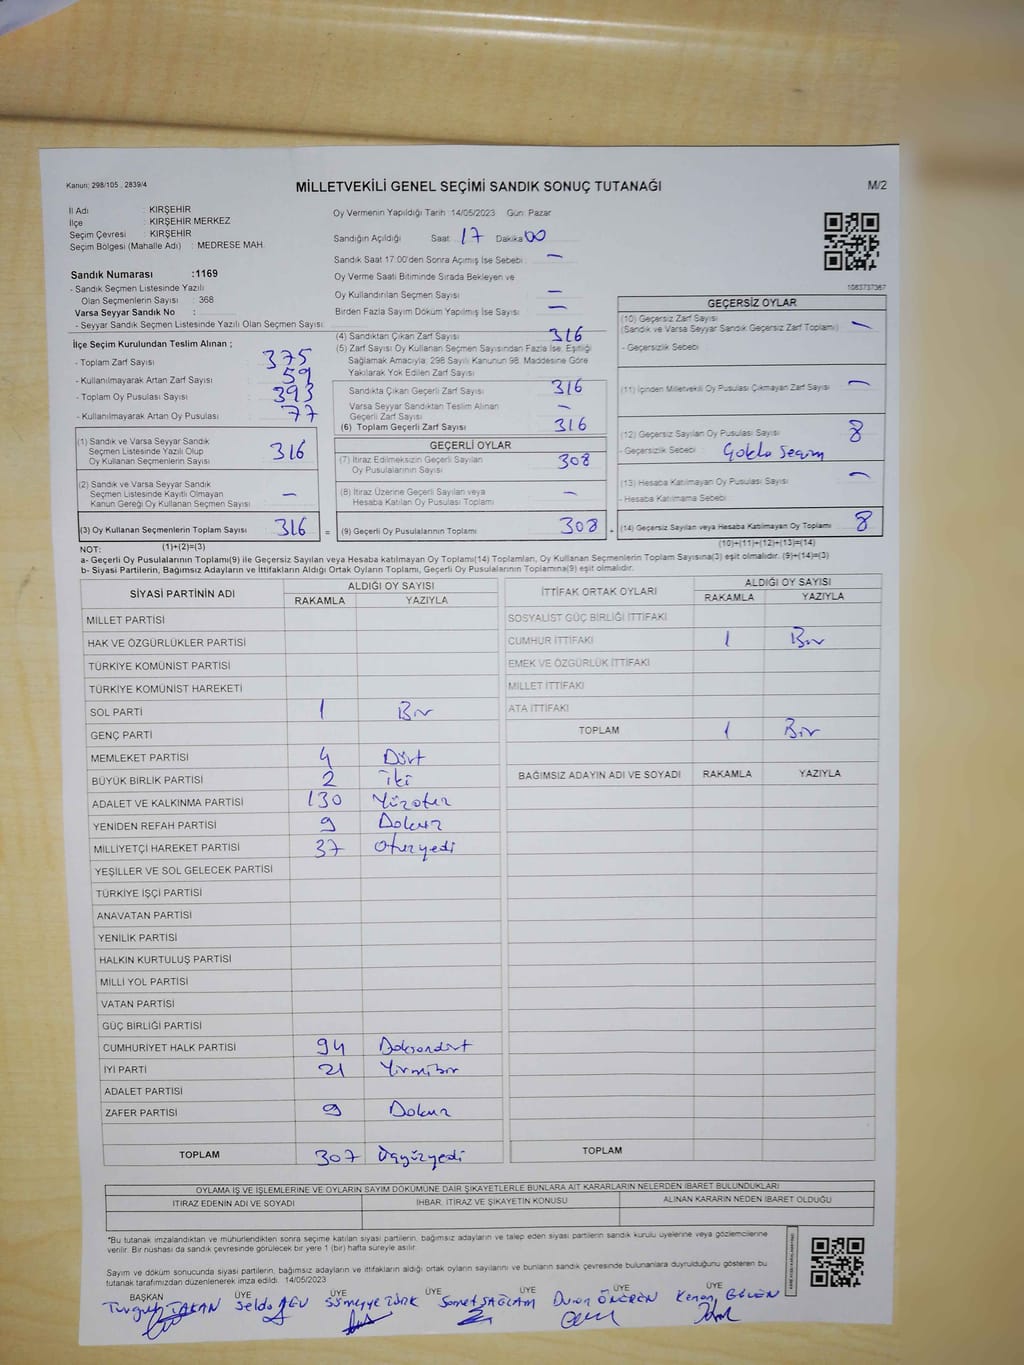 Kanun: 298/105 , 2839/4
MİLLETVEKİLİ GENEL SEÇİMİ SANDIK SONUÇ TUTANAĞI
M/2
İl Adı : KIRŞEHİR
İlçe : KIRŞEHİR MERKEZ
Seçim Çevresi : KIRŞEHİR
Seçim Bölgesi (Mahalle Adı) : MEDRESE MAH.
Oy Vermenin Yapıldığı Tarih : 14/05/2023 Gün: Pazar
Sandığın Açıldığı Saat: 17 Dakika: 00
Sandık Saat 17:00'den Sonra Açılmış İse Sebebi : —
Oy Verme Saati Bitiminde Sırada Bekleyen ve
Oy Kullandırılan Seçmen Sayısı : —
Birden Fazla Sayım Döküm Yapılmış İse Sayısı : —
1083737367
Sandık Numarası :1169
- Sandık Seçmen Listesinde Yazılı
Olan Seçmenlerin Sayısı : 368
Varsa Seyyar Sandık No :
- Seyyar Sandık Seçmen Listesinde Yazılı Olan Seçmen Sayısı:
İlçe Seçim Kurulundan Teslim Alınan ;
- Toplam Zarf Sayısı : 375
- Kullanılmayarak Artan Zarf Sayısı : 59
- Toplam Oy Pusulası Sayısı : 393
- Kullanılmayarak Artan Oy Pusulası : 77
(1) Sandık ve Varsa Seyyar Sandık
Seçmen Listesinde Yazılı Olup
Oy Kullanan Seçmenlerin Sayısı 316
(2) Sandık ve Varsa Seyyar Sandık
Seçmen Listesinde Kayıtlı Olmayan
Kanun Gereği Oy Kullanan Seçmen Sayısı —
(3) Oy Kullanan Seçmenlerin Toplam Sayısı 316 =
(4) Sandıktan Çıkan Zarf Sayısı 316
(5) Zarf Sayısı Oy Kullanan Seçmen Sayısından Fazla İse, Eşitliği
Sağlamak Amacıyla, 298 Sayılı Kanunun 98. Maddesine Göre
Yakılarak Yok Edilen Zarf Sayısı
Sandıkta Çıkan Geçerli Zarf Sayısı 316
Varsa Seyyar Sandıktan Teslim Alınan
Geçerli Zarf Sayısı —
(6) Toplam Geçerli Zarf Sayısı 316
GEÇERLİ OYLAR
(7) İtiraz Edilmeksizin Geçerli Sayılan
Oy Pusulalarının Sayısı 308
(8) İtiraz Üzerine Geçerli Sayılan veya
Hesaba Katılan Oy Pusulası Toplamı —
(9) Geçerli Oy Pusulalarının Toplamı 308 +
GEÇERSİZ OYLAR
(10) Geçersiz Zarf Sayısı
(Sandık ve Varsa Seyyar Sandık Geçersiz Zarf Toplamı) —
- Geçersizlik Sebebi :
(11) İçinden Milletvekili Oy Pusulası Çıkmayan Zarf Sayısı —
(12) Geçersiz Sayılan Oy Pusulası Sayısı 8
- Geçersizlik Sebebi : Çoklu Seçim
(13) Hesaba Katılmayan Oy Pusulası Sayısı —
- Hesaba Katılmama Sebebi :
(14) Geçersiz Sayılan veya Hesaba Katılmayan Oy Toplamı 8
NOT: (1)+(2)=(3)
(10)+(11)+(12)+(13)=(14)
a- Geçerli Oy Pusulalarının Toplamı(9) ile Geçersiz Sayılan veya Hesaba katılmayan Oy Toplamı(14) Toplamları, Oy Kullanan Seçmenlerin Toplam Sayısına(3) eşit olmalıdır. (9)+(14)=(3)
b- Siyasi Partilerin, Bağımsız Adayların ve İttifakların Aldığı Ortak Oyların Toplamı, Geçerli Oy Pusulalarının Toplamına(9) eşit olmalıdır.
SİYASİ PARTİNİN ADI ALDIĞI OY SAYISI
RAKAMLA YAZIYLA
MİLLET PARTİSİ
HAK VE ÖZGÜRLÜKLER PARTİSİ
TÜRKİYE KOMÜNİST PARTİSİ
TÜRKİYE KOMÜNİST HAREKETİ
SOL PARTİ 1 Bir
GENÇ PARTİ
MEMLEKET PARTİSİ 4 Dört
BÜYÜK BİRLİK PARTİSİ 2 İki
ADALET VE KALKINMA PARTİSİ 130 Yüzotuz
YENİDEN REFAH PARTİSİ 9 Dokuz
MİLLİYETÇİ HAREKET PARTİSİ 37 Otuzyedi
YEŞİLLER VE SOL GELECEK PARTİSİ
TÜRKİYE İŞÇİ PARTİSİ
ANAVATAN PARTİSİ
YENİLİK PARTİSİ
HALKIN KURTULUŞ PARTİSİ
MİLLİ YOL PARTİSİ
VATAN PARTİSİ
GÜÇ BİRLİĞİ PARTİSİ
CUMHURİYET HALK PARTİSİ 94 Doksandört
İYİ PARTİ 21 Yirmibir
ADALET PARTİSİ
ZAFER PARTİSİ 9 Dokuz
TOPLAM 307 Üçyüzyedi
İTTİFAK ORTAK OYLARI ALDIĞI OY SAYISI
RAKAMLA YAZIYLA
SOSYALİST GÜÇ BİRLİĞİ İTTİFAKI
CUMHUR İTTİFAKI 1 Bir
EMEK VE ÖZGÜRLÜK İTTİFAKI
MİLLET İTTİFAKI
ATA İTTİFAKI
TOPLAM 1 Bir
BAĞIMSIZ ADAYIN ADI VE SOYADI RAKAMLA YAZIYLA
TOPLAM
OYLAMA İŞ VE İŞLEMLERİNE VE OYLARIN SAYIM DÖKÜMÜNE DAİR ŞİKAYETLERLE BUNLARA AİT KARARLARIN NELERDEN İBARET BULUNDUKLARI
İTİRAZ EDENİN ADI VE SOYADI İHBAR, İTİRAZ VE ŞİKAYETİN KONUSU ALINAN KARARIN NEDEN İBARET OLDUĞU
*Bu tutanak imzalandıktan ve mühürlendikten sonra seçime katılan siyasi partilerin, bağımsız adayların ve talep eden siyasi partilerin sandık kurulu üyelerine veya gözlemcilerine
verilir. Bir nüshası da sandık çevresinde görülecek bir yere 1 (bir) hafta süreyle asılır.
Sayım ve döküm sonucunda siyasi partilerin, bağımsız adayların ve ittifakların aldığı ortak oyların sayılarını ve bunların sandık çevresinde bulunanlara duyrulduğunu gösteren bu
tutanak tarafımızdan düzenlenerek imza edildi. 14/05/2023
BAŞKAN ÜYE ÜYE ÜYE ÜYE ÜYE
Turgut TAKAN Selda AGU Sümeyye TÜRK Samet SAĞLAM Duran ÖNEREN Kenan GÜVEN